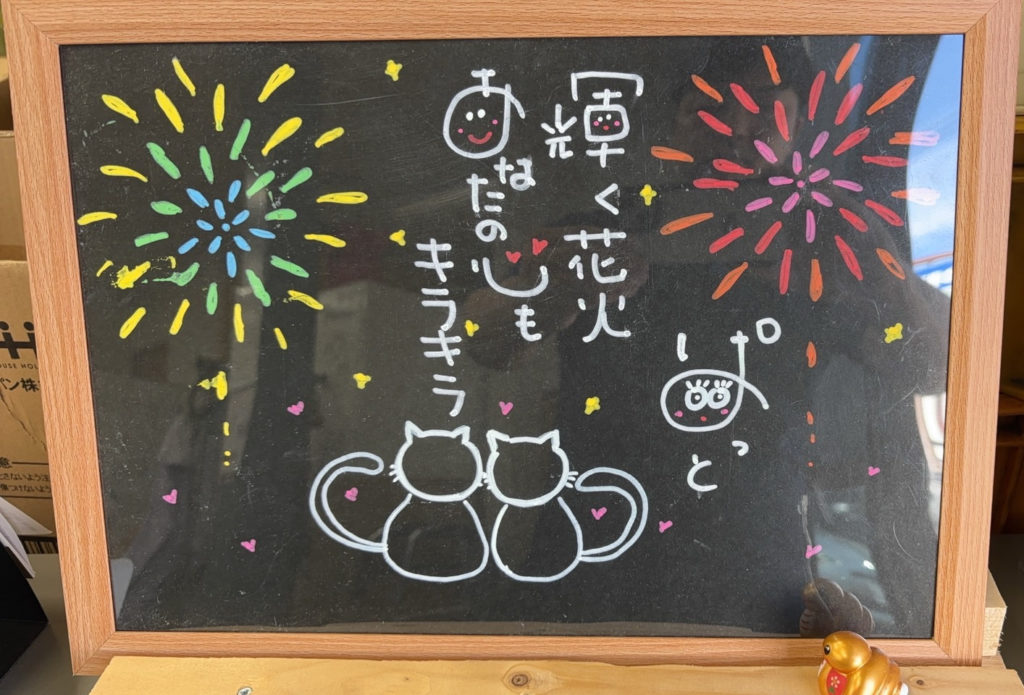 ぱっと
輝く花火
あなたの心も
キラキラ
パン株
意